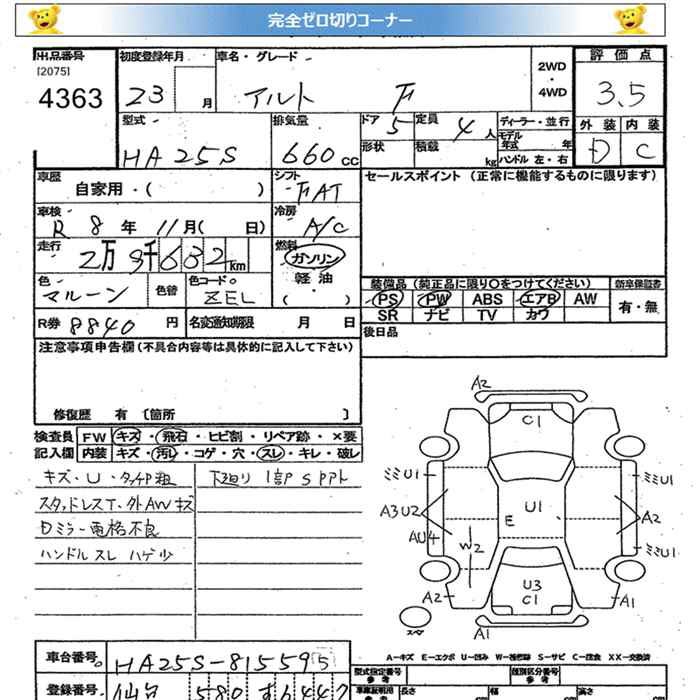 完全ゼロ切りコーナー
出品番号 初度登録年月 車名・グレード 2WD ・ 4WD 評価点
[2075]
4363 23 月 アルト F 3.5
型式 排気量 ドア 定員 ディーラー・並行 外装 内装
HA25S 660cc 5 4人 モデル年式 年 D C
形状 積載 kg ハンドル 左・右
車歴 シフト セールスポイント (正常に機能するものに限ります)
自家用・( ) FAT
車検 冷房
R 8年 11月( 日) A/C
走行 燃料
2万9千632Km ガソリン
色 色替 色コード 軽油
マルーン ZEL ( )
装備品 (純正品に限り○をつけてください) 新車保証書
PS PW ABS エアB AW 有・無
SR ナビ TV カワ
R券 8840円 名変通知期限 月 日
後日品
注意事項申告欄 (不具合内容等は具体的に記入して下さい)
修復歴 有 〔箇所 〕
検査員 FW キズ・飛石・ヒビ割・リペア跡・×要
記入欄 内装 キズ・汚レ・コゲ・穴・スレ・キレ・破レ
キズ・U・タッチP粗 下廻り 1部P S Pアト
スタッドレスT・外AWキズ
Dミラー電格不良
ハンドルスレ ハゲ少
A2
C1
ミミU1 ミミU1
A3U2 U1 A2
E
AU4 W2 ミミU1
U3
A2 C1 A1
スペア A1
A-キズ E-エクボ U-凹み W-補修跡 S-サビ C-腐食 XX-交換済
車台番号 HA25S-815595
型式指定番号 類別区分番号
登録番号 仙台 580
参考 長さ 幅 高さ